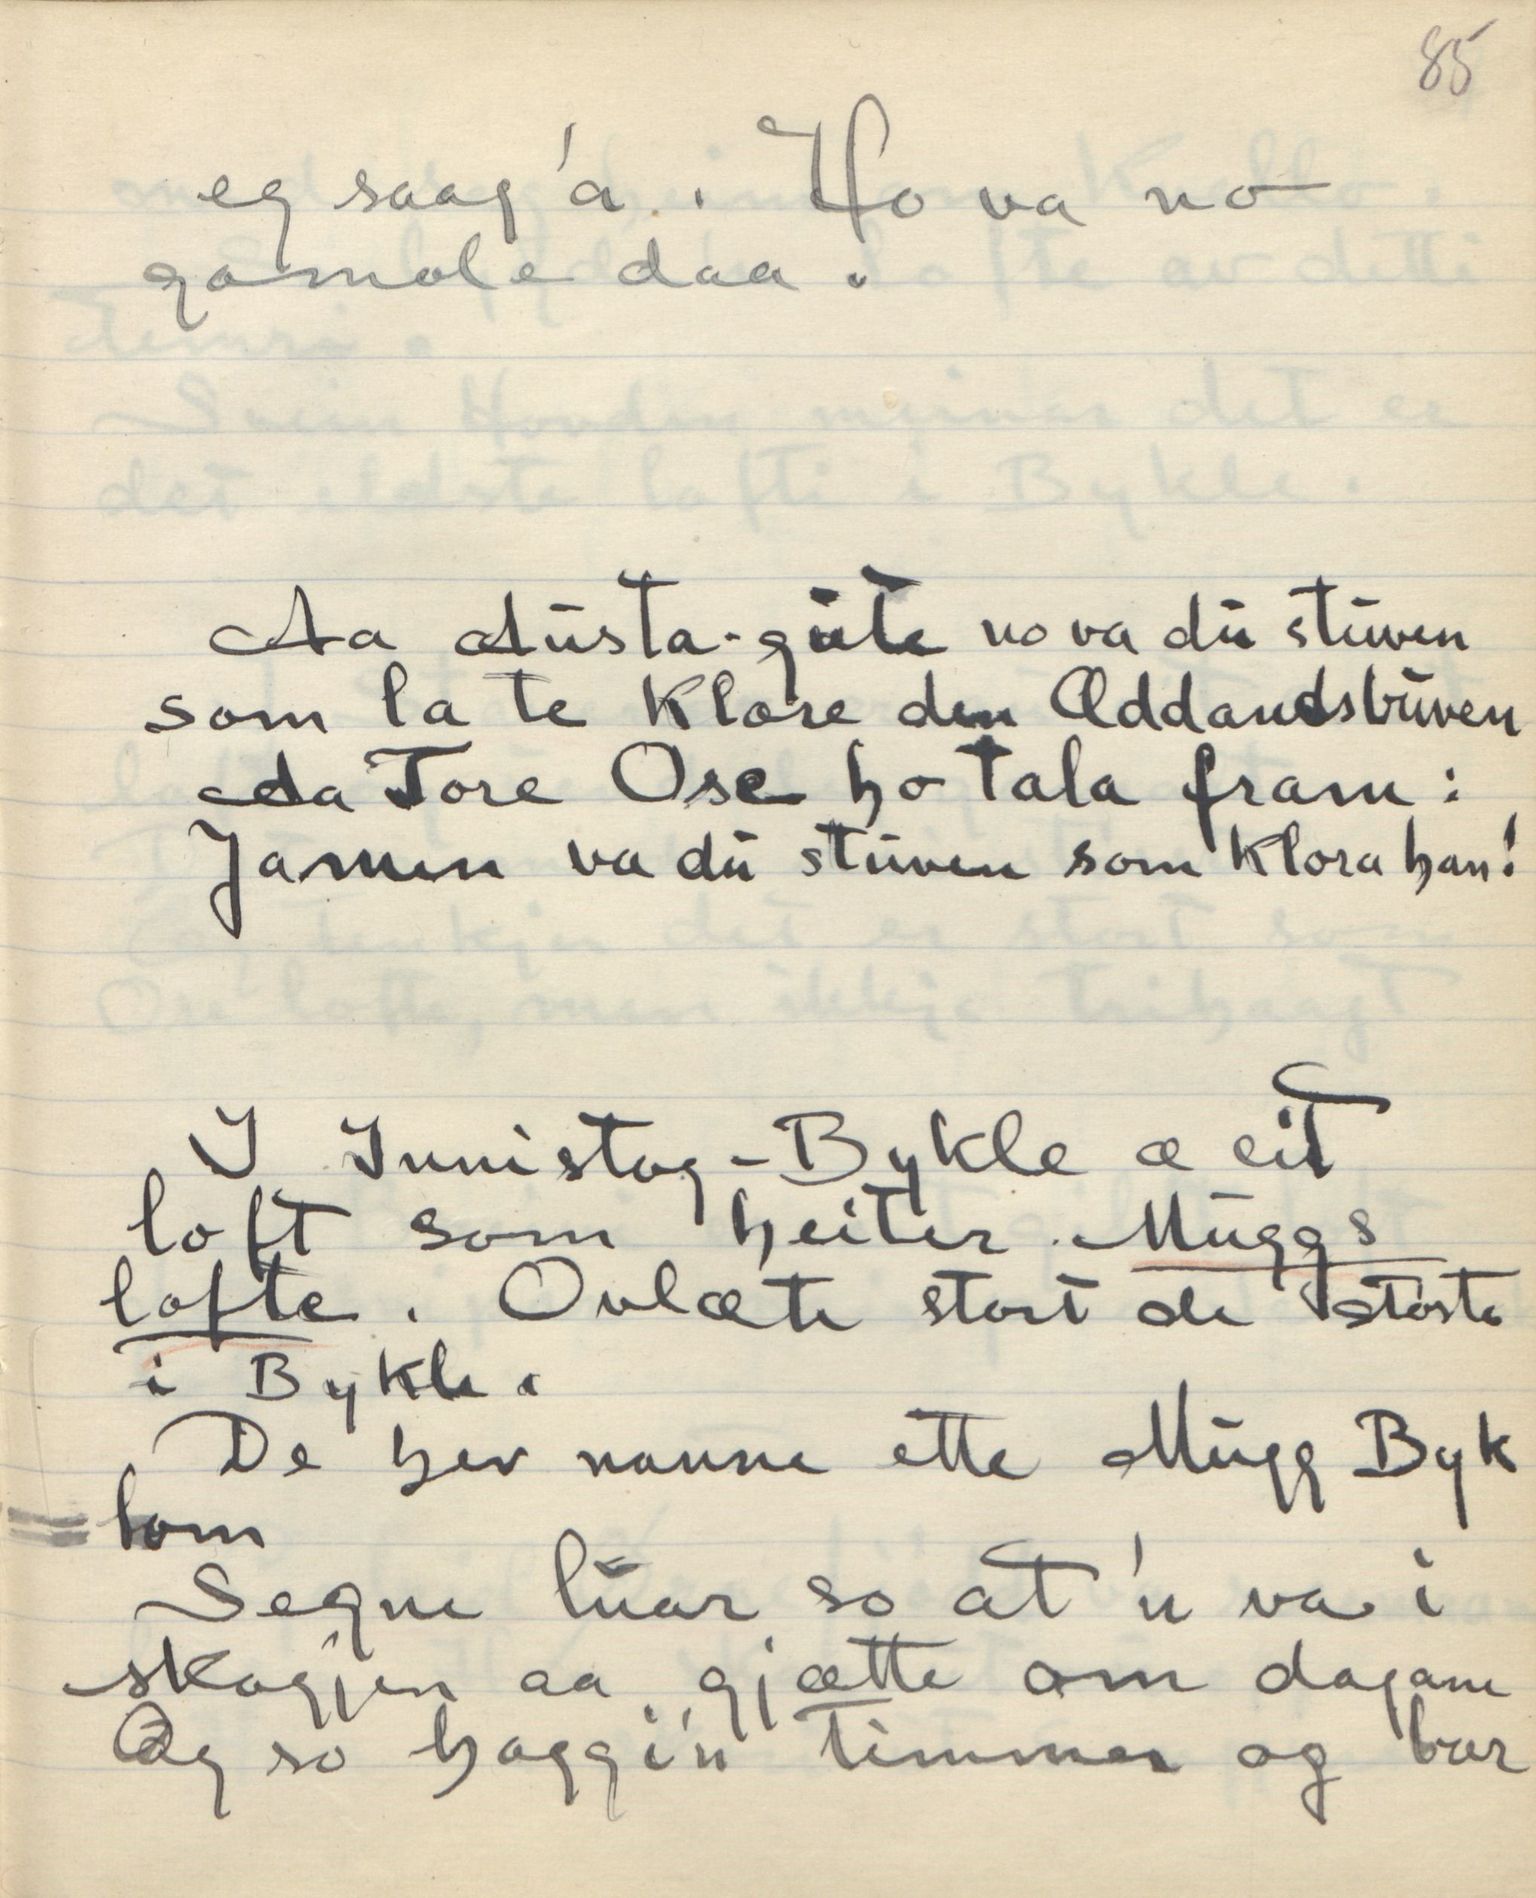 85
eg saag'a. Ho va no
gamole daa.
Aa dŭsta-gŭte no va dŭ stŭven
som la te Klore den Øddandsbŭven
da Tore Ose ho tala fram:
Jamen va dŭ stŭven som Klora han!
I Innistog-Bykle æ eit
loft som heiter Mŭggs
lofte. Ovlæte stort de største
i Bykle.
De hev nanne ette Mŭgg Byk
lom
Segne lŭar so at 'n va i
skogjen aa gjætte om dagane
Og so hoggi'n timmer og bar